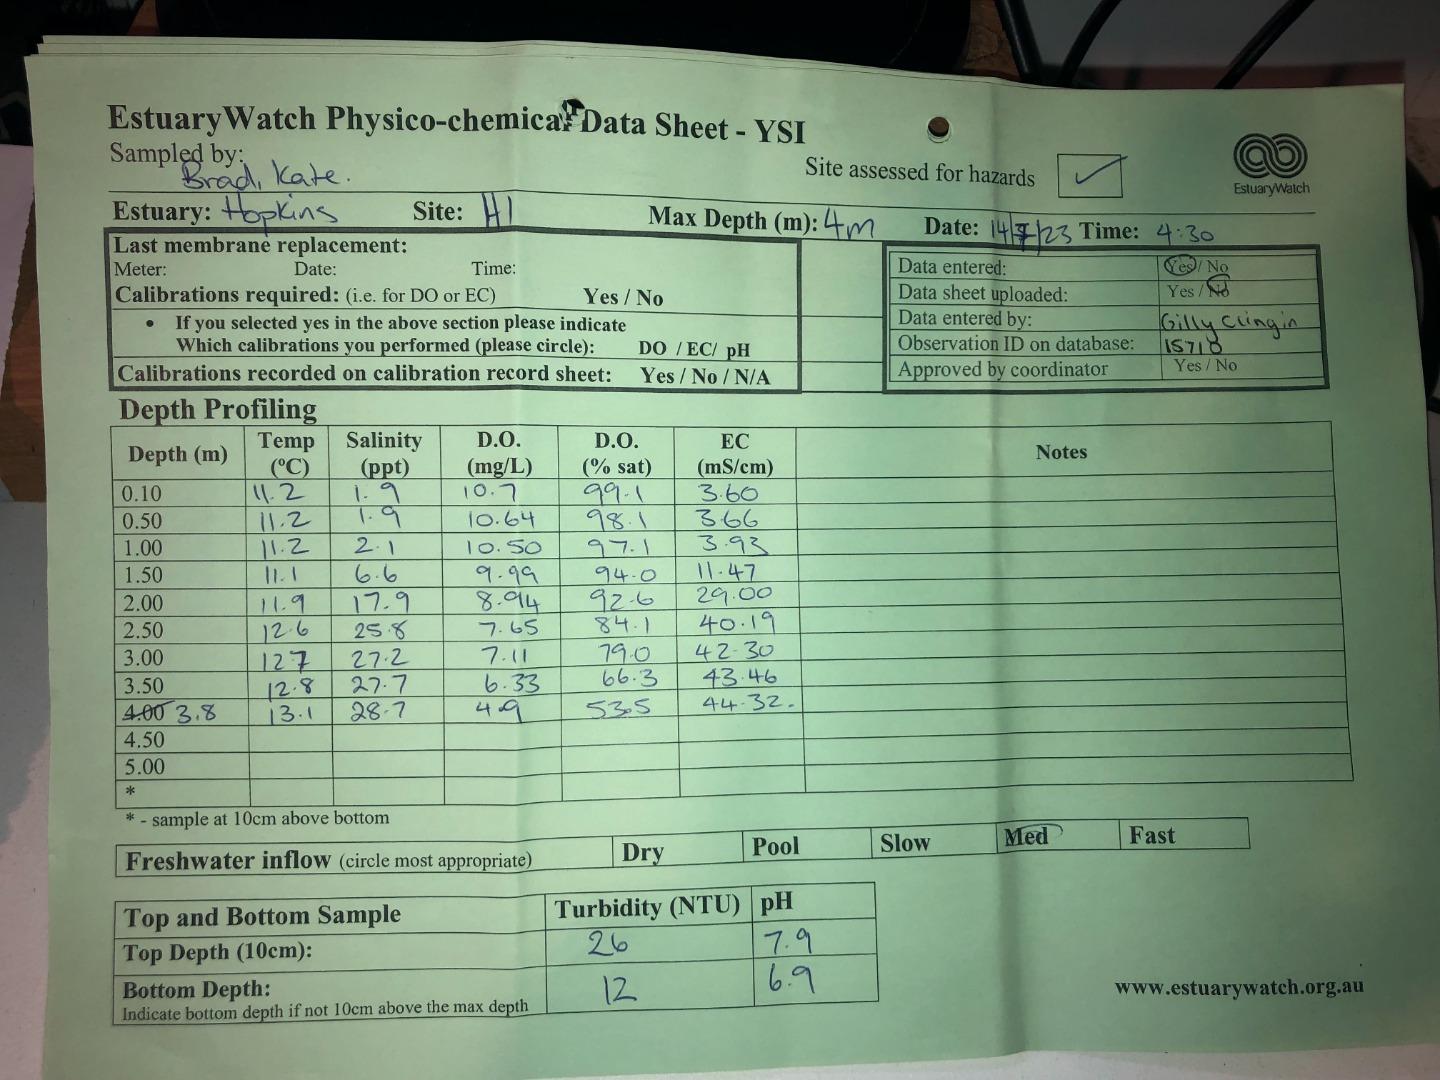 EstuaryWatch Physico-chemical Data Sheet - YSI
Sampled by: Brad, Kate.
Site assessed for hazards ✓
EstuaryWatch
Estuary: Hopkins Site: H1 Max Depth (m): 4m Date: 14/7/23 Time: 4:30
Last membrane replacement:
Meter: Date: Time:
Calibrations required: (i.e. for DO or EC) Yes / No
• If you selected yes in the above section please indicate
Which calibrations you performed (please circle): DO / EC/ pH
Calibrations recorded on calibration record sheet: Yes / No / N/A
Data entered: Yes / No
Data sheet uploaded: Yes / No
Data entered by: Gilly Clingin
Observation ID on database: 15718
Approved by coordinator Yes / No
Depth Profiling
Depth (m) Temp (ºC) Salinity (ppt) D.O. (mg/L) D.O. (% sat) EC (mS/cm) Notes
0.10 11.2 1.9 10.7 99.1 3.60
0.50 11.2 1.9 10.64 98.1 3.66
1.00 11.2 2.1 10.50 97.1 3.93
1.50 11.1 6.6 9.99 94.0 11.47
2.00 11.9 17.9 8.94 92.6 29.00
2.50 12.6 25.8 7.65 84.1 40.19
3.00 12.7 27.2 7.11 79.0 42.30
3.50 12.8 27.7 6.33 66.3 43.46
4.00 3.8 13.1 28.7 4.9 53.5 44.32.
4.50
5.00
*
* - sample at 10cm above bottom
Freshwater inflow (circle most appropriate) Dry Pool Slow Med Fast
Top and Bottom Sample Turbidity (NTU) pH
Top Depth (10cm): 26 7.9
Bottom Depth: 12 6.9
Indicate bottom depth if not 10cm above the max depth
www.estuarywatch.org.au